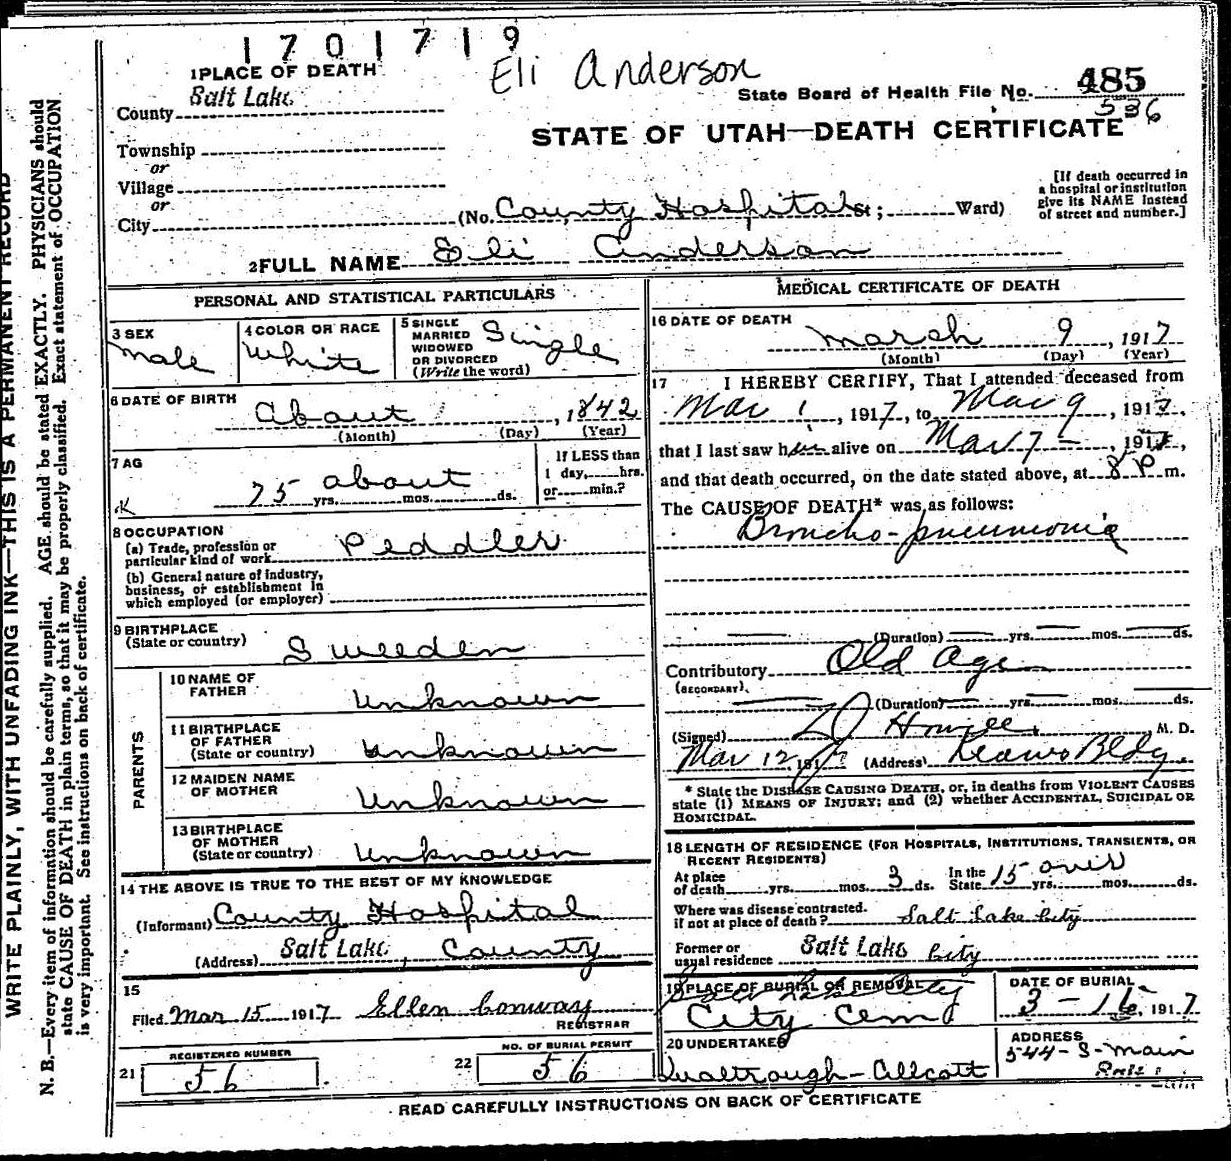 1701719
Eli Anderson
1 PLACE OF DEATH
County Salt Lake
State Board of Health File No. 485
536
STATE OF UTAH—DEATH CERTIFICATE
Township
or
Village
or
City
(No. County Hospital St; Ward)
[If death occurred in
a hospital or institution
give its NAME instead
of street and number.]
2 FULL NAME Eli Anderson
PERSONAL AND STATISTICAL PARTICULARS
3 SEX
Male
4 COLOR OR RACE
White
5 SINGLE
MARRIED
WIDOWED
OR DIVORCED
(Write the word)
Single
6 DATE OF BIRTH
About , 1842
(Month) (Day) (Year)
7 AG
75 yrs. about mos. ds.
If LESS than
1 day, hrs.
or min.?
8 OCCUPATION
(a) Trade, profession or
particular kind of work Peddler
(b) General nature of industry,
business, or establishment in
which employed (or employer)
9 BIRTHPLACE
(State or country) Sweeden
PARENTS
10 NAME OF
FATHER Unknown
11 BIRTHPLACE
OF FATHER
(State or country) Unknown
12 MAIDEN NAME
OF MOTHER Unknown
13 BIRTHPLACE
OF MOTHER
(State or country) Unknown
14 THE ABOVE IS TRUE TO THE BEST OF MY KNOWLEDGE
(Informant) County Hospital
(Address) Salt Lake, County
15
Filed Mar 15 1917 Ellen Conway
REGISTRAR
21 REGISTERED NUMBER
56
22 NO. OF BURIAL PERMIT
56
MEDICAL CERTIFICATE OF DEATH
16 DATE OF DEATH
March 9, 1917
(Month) (Day) (Year)
17 I HEREBY CERTIFY, That I attended deceased from
Mar 1, 1917, to Mar 9, 1917,
that I last saw him alive on Mar 7 -, 1917,
and that death occurred, on the date stated above, at 8 P m.
The CAUSE OF DEATH* was as follows:
Broncho-pneumonia
(Duration) yrs. mos. ds.
Contributory Old Age
(SECONDARY)
(Duration) yrs. mos. ds.
(Signed) M. D.
Mar 12 1917 (Address) Bldg.
* State the DISEASE CAUSING DEATH, or, in deaths from VIOLENT CAUSES
state (1) MEANS OF INJURY; and (2) whether ACCIDENTAL, SUICIDAL OR
HOMICIDAL.
18 LENGTH OF RESIDENCE (FOR HOSPITALS, INSTITUTIONS, TRANSIENTS, OR
RECENT RESIDENTS)
At place
of death yrs. mos. 3 ds.
In the
State 15 over yrs. mos. ds.
Where was disease contracted.
if not at place of death? Salt Lake City
Former or
usual residence Salt Lake City
19 PLACE OF BURIAL OR REMOVAL
Salt Lake City
City Cem
DATE OF BURIAL
3-16, 1917
20 UNDERTAKER
ADDRESS
544-S-Main
READ CAREFULLY INSTRUCTIONS ON BACK OF CERTIFICATE
WRITE PLAINLY, WITH UNFADING INK—THIS IS A PERMANENT RECORD
N. B.—Every item of information should be carefully supplied. AGE should be stated EXACTLY. PHYSICIANS should
state CAUSE OF DEATH in plain terms, so that it may be properly classified. Exact statement of OCCUPATION
is very important. See instructions on back of certificate.